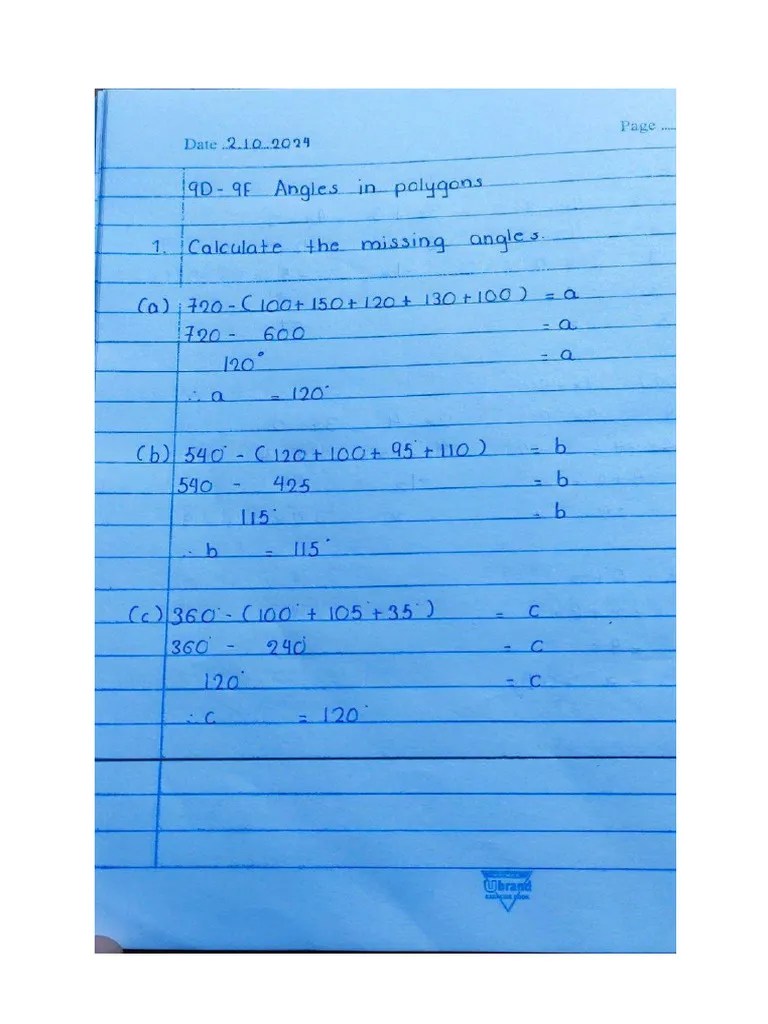 Page .....
Date ..2.10..2024
9D - 9F Angles in polygons
1. Calculate the missing angles.
(a) 720 - (100 + 150 + 120 + 130 + 100) = a
720 - 600 = a
120° = a
∴ a = 120°
(b) 540° - (120 + 100 + 95° + 110) = b
540 - 425 = b
115° = b
∴ b = 115°
(c) 360° - (100° + 105° + 35°) = c
360° - 240° = c
120° = c
∴ c = 120°
Ubrand